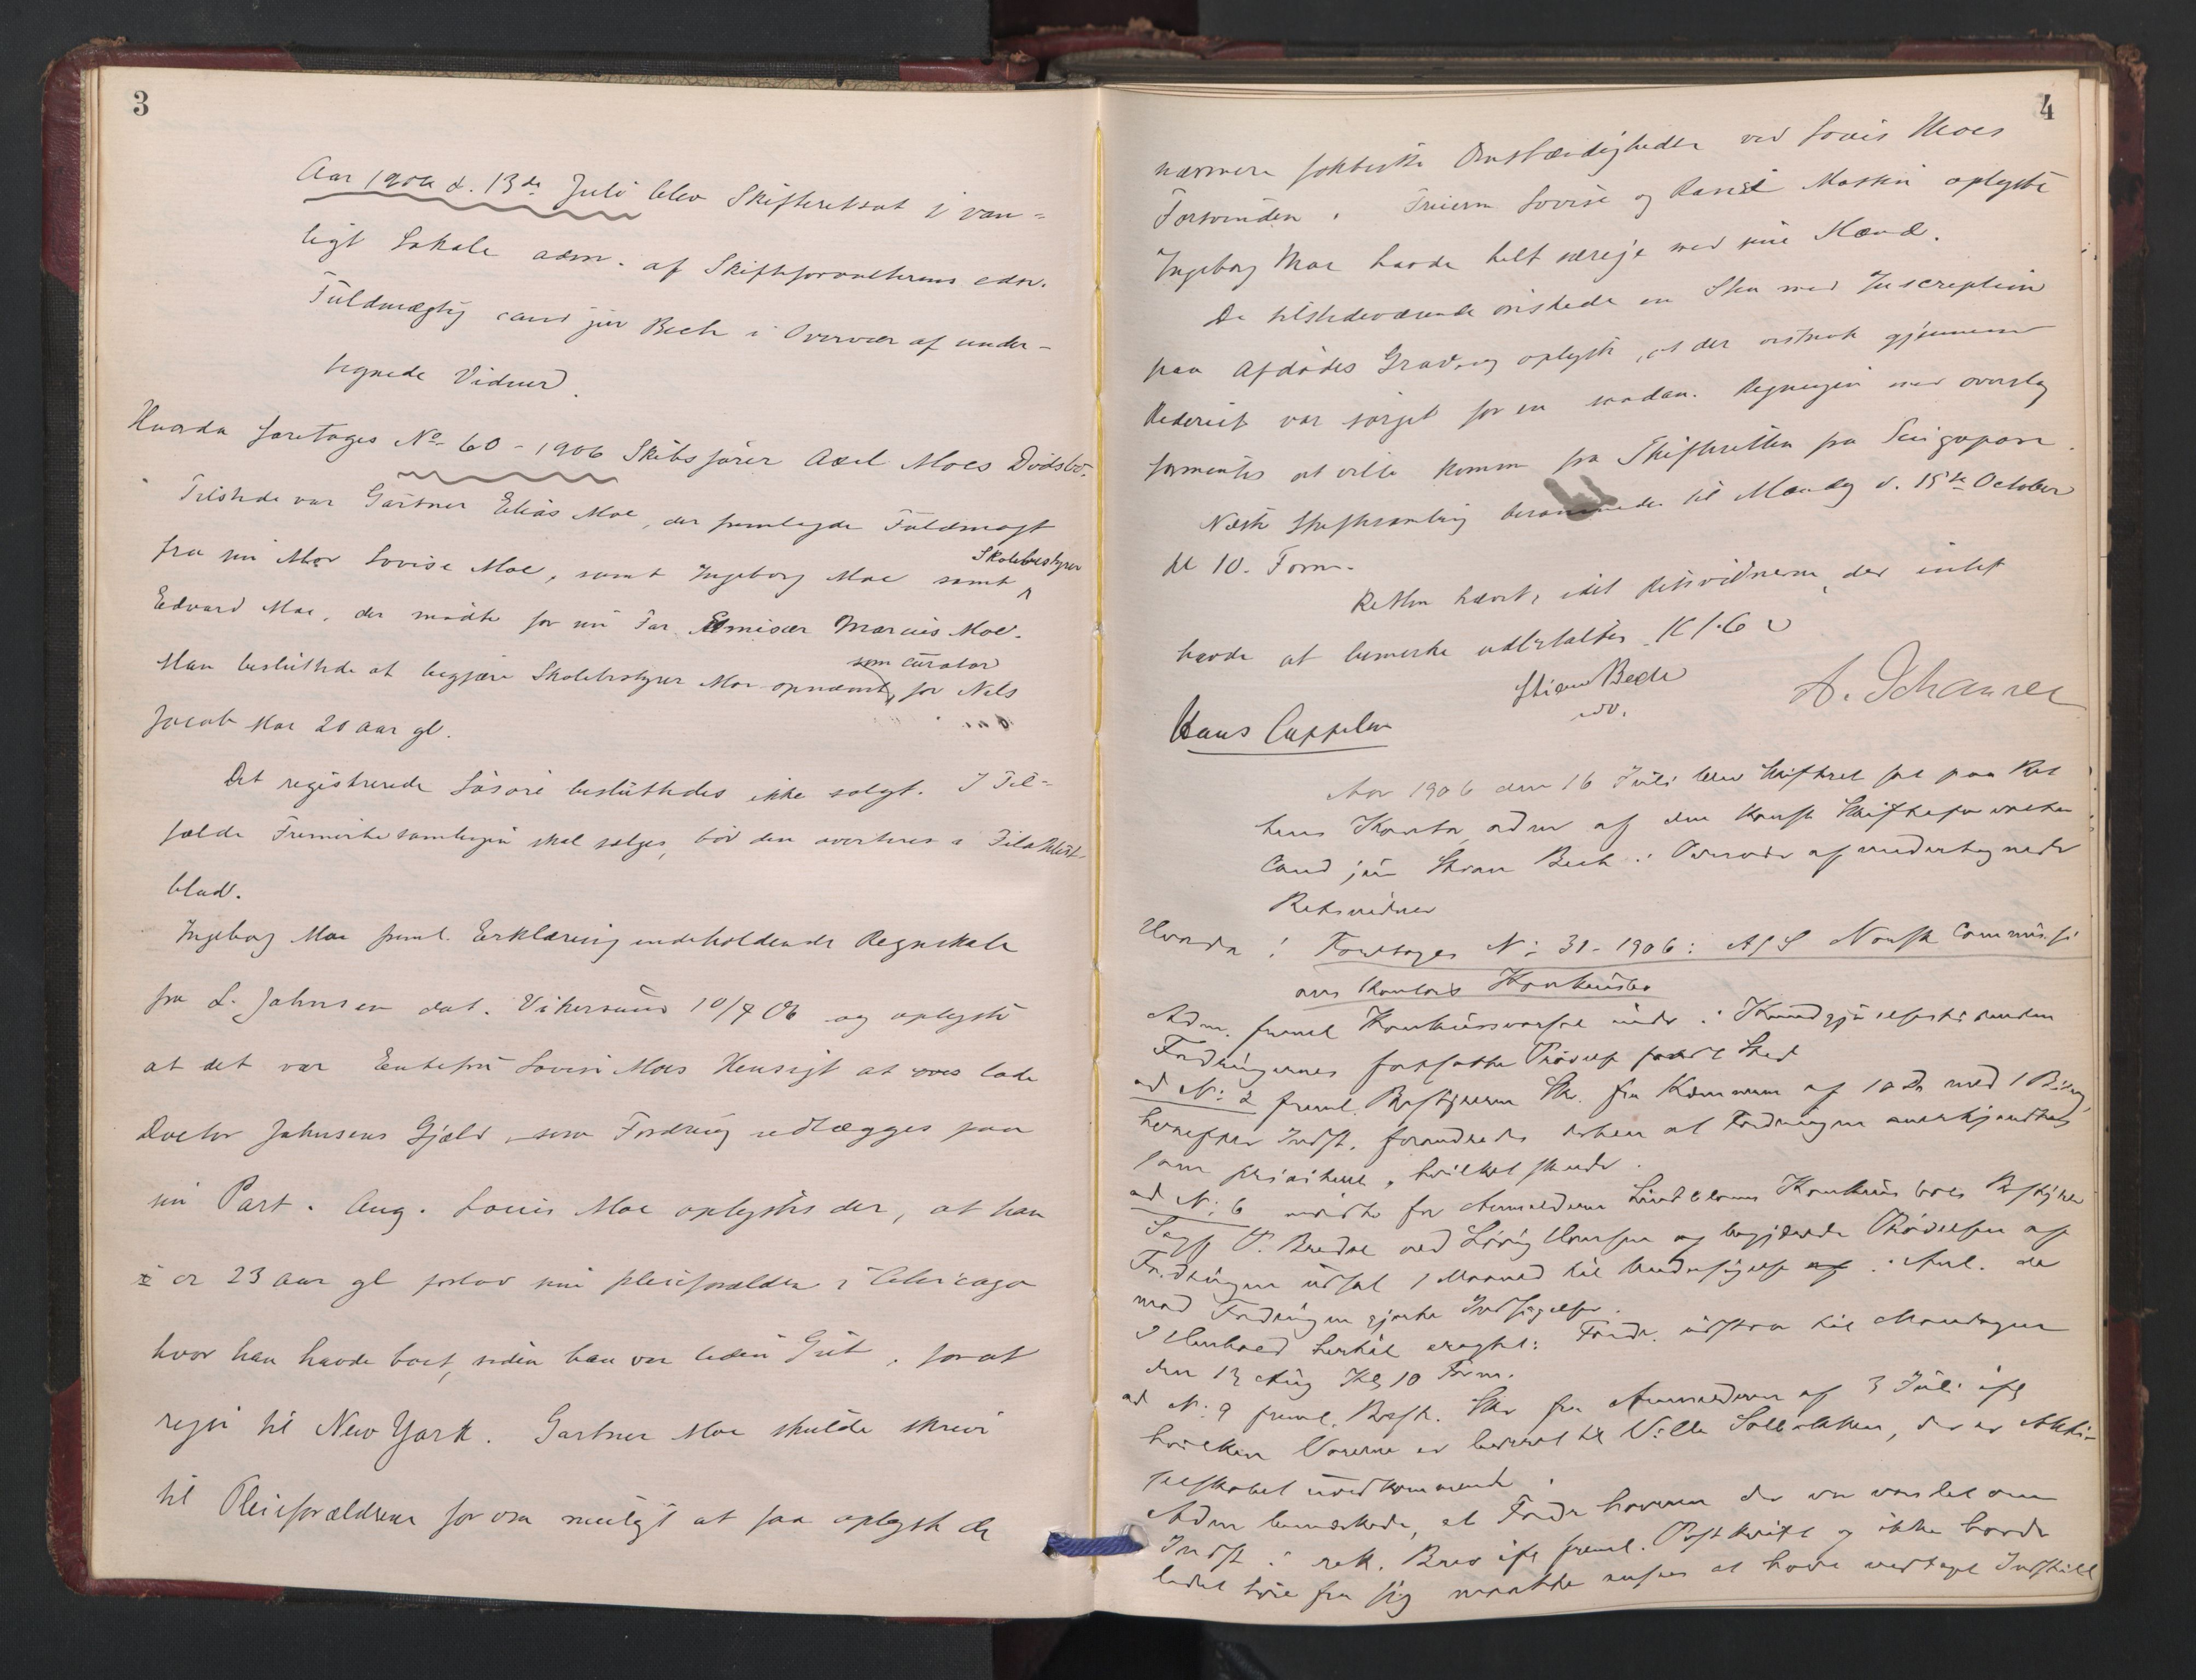 3
Aar 1906 d. 13de Juli blev Skifteret sat i van=
ligt Lokale adm. af Skifteforvalterens edsv.
Fuldmægtig cand jur Bech i Overvær af under-
tegnede Vidner.
Hvorda foretages No 60 - 1906 Skibsfører Axel Moes Dødsbo.
Tilstede var Gartner Elias Moe, der fremlagde Fuldmagt
fra sin Mor Lovise Moe, samt Ingeborg Moe samt Skolebestyrer
Edvard Moe, der mødte for sin Far Emisær Marius Moe.
Man besluttede at begjære Skolebestyrer Moe opnævnt som curator for Nils
Jacob Moe 20 aar gl.
Det registrerede Løsøre besluttedes ikke solgt. I Til=
fælde Frimerkesamlingen skal selges, bør den averteres i Filatelist-
blad.
Ingeborg Moe freml. Erklæring indeholdende Regnskab
fra L. Johnsen dat. Vikersund 10/7 06 og oplyste
at det var Enkefru Lovise Moes Hensigt at lade
Doctor Johnsens Gjæld som Fordring udlægges paa
sin Part. Ang. Louis Moe oplystes der, at han
er 23 aar gl forlod sine pleieforældre i Chicago
hvor han havde boet, siden han var liden Gut, for at
rejse til New York. Gartner Moe skulde skrive
til Pleieforældrene for om muligt at faa oplyst de
4
nærmere faktiske Omstændigheder ved Louis Moes
Forsvinden. Frierne Lovise og Daniel oplyste
Ingeborg Moe havde helt særeje med sine Mænd.
De tilstedeværende ønskede en Sten med Inscreption
paa Afdødes Grav og oplyste, at der gjennem
Rederiet var sørget for en saadan. Regningen med overslag
formentes at ville komme fra Skifteretten fra Singapore.
Næste Skiftesamling berammedes til Mandag d. 15de October
kl 10. Form.
Retten hævet, idet Retsvidnerne, der intet
havde at bemerke udbetaltes K 1.60
Stian Bech
edsv.
A. Schanver
Hans Cappelen
Aar 1906 den 16 Juli blev Skifteret sat paa Ret
tens Kontor, adm af den konst Skifteforvalter
Cand jur Stian Bech i Overvær af undertegnede
Retsvidner
Hvorda: Foretoges N: 31 - 1906: A/S Norsk Commissi
ons Kontors Konkursbo
Adm. freml Konkursvarsel
Fordringernes fortsatte Prøvelse fandt Sted
ad N: 2 freml. Bestyreren Skr. fra Kæmneren af 10 Ds med 1 Bilag,
hvorefter Indst. forandredes derhen at Fordringen anerkjendtes
som prioriteret, hvilket skede.
ad N: 6 mødte for Anmelderne Konkursboes Bestyrer
Sagf. P. Bredal ved Hansen og begjærede Prøvelsen af
Fordringen udsat 1 Maaned til Undersøgelse af i Anl. de
mod Fordringen gjorte Indsigelser.
I Henhold hertil eragtet: Fordr. udstaar til Mandagen
den 13 Aug Kl 10 Form.
ad N: 9 freml. Best. Skr fra Anmelderen af 3 Juli ifg
hvilken Varerne er leveret til Villa Solbakken, der er Aktie
selskabet uvedkommende.
Adm bemærkede, at Fordr haveren der var varslet om
Indst i rek. Brev ifl freml. Postkvitt og ikke havde
ladet høre fra sig maatte anses at have vedtaget Indstill